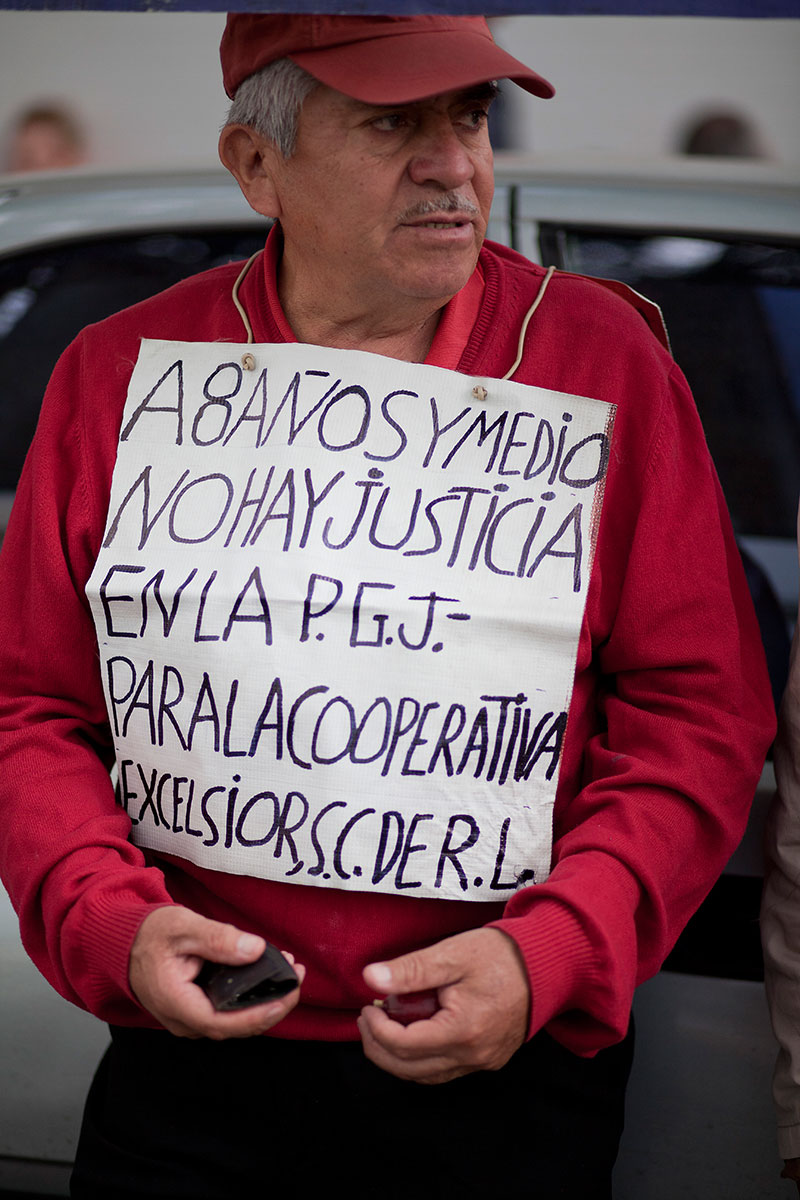 A 8 AÑOS Y MEDIO
NO HAY JUSTICIA
EN LA P.G.J.-
PARA LA COOPERATIVA
EXCELSIOR, S.C. DE R.L.